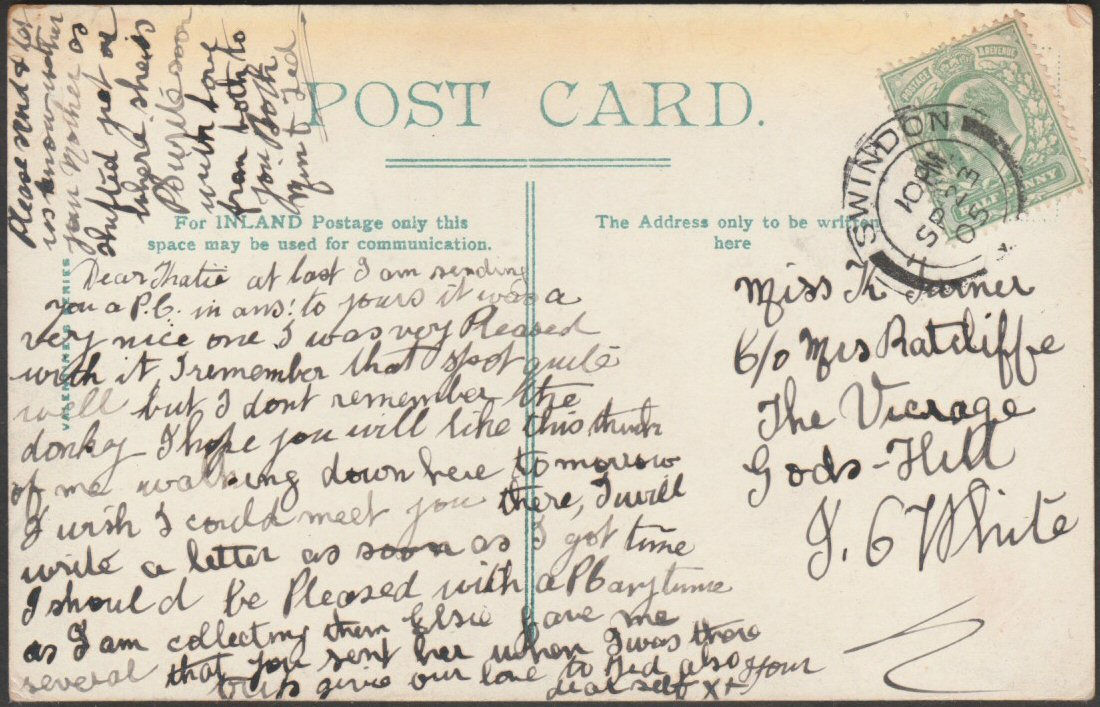 Please send & let
us know wether
your Mother as
shifted yet or
where she is
with love
from both to
you Both
Min & Ted
POST CARD.
For INLAND Postage only this
space may be used for communication.
The Address only to be written
here
VALENTINE'S SERIES
POSTAGE & REVENUE
HALFPENNY
SWINDON
10 PM
SP 23
05
Dear Katie at last I am sending
you a P.C. in ans: to yours it was a
very nice one I was very Pleased
with it I remember that spot quite
well but I dont remember the
donky I hope you will like this think
of me walking down here tomorrow
I wish I could meet you there, I will
write a letter as soon as I got time
I should be Pleased with a PC any time
as I am collecting them Elsie gave me
several that you sent her when I was there
give our love to Ned also your
dear self X+
Miss K Turner
C/o Mrs Ratcliffe
The Vicrage
Gods-Hill
I. of White